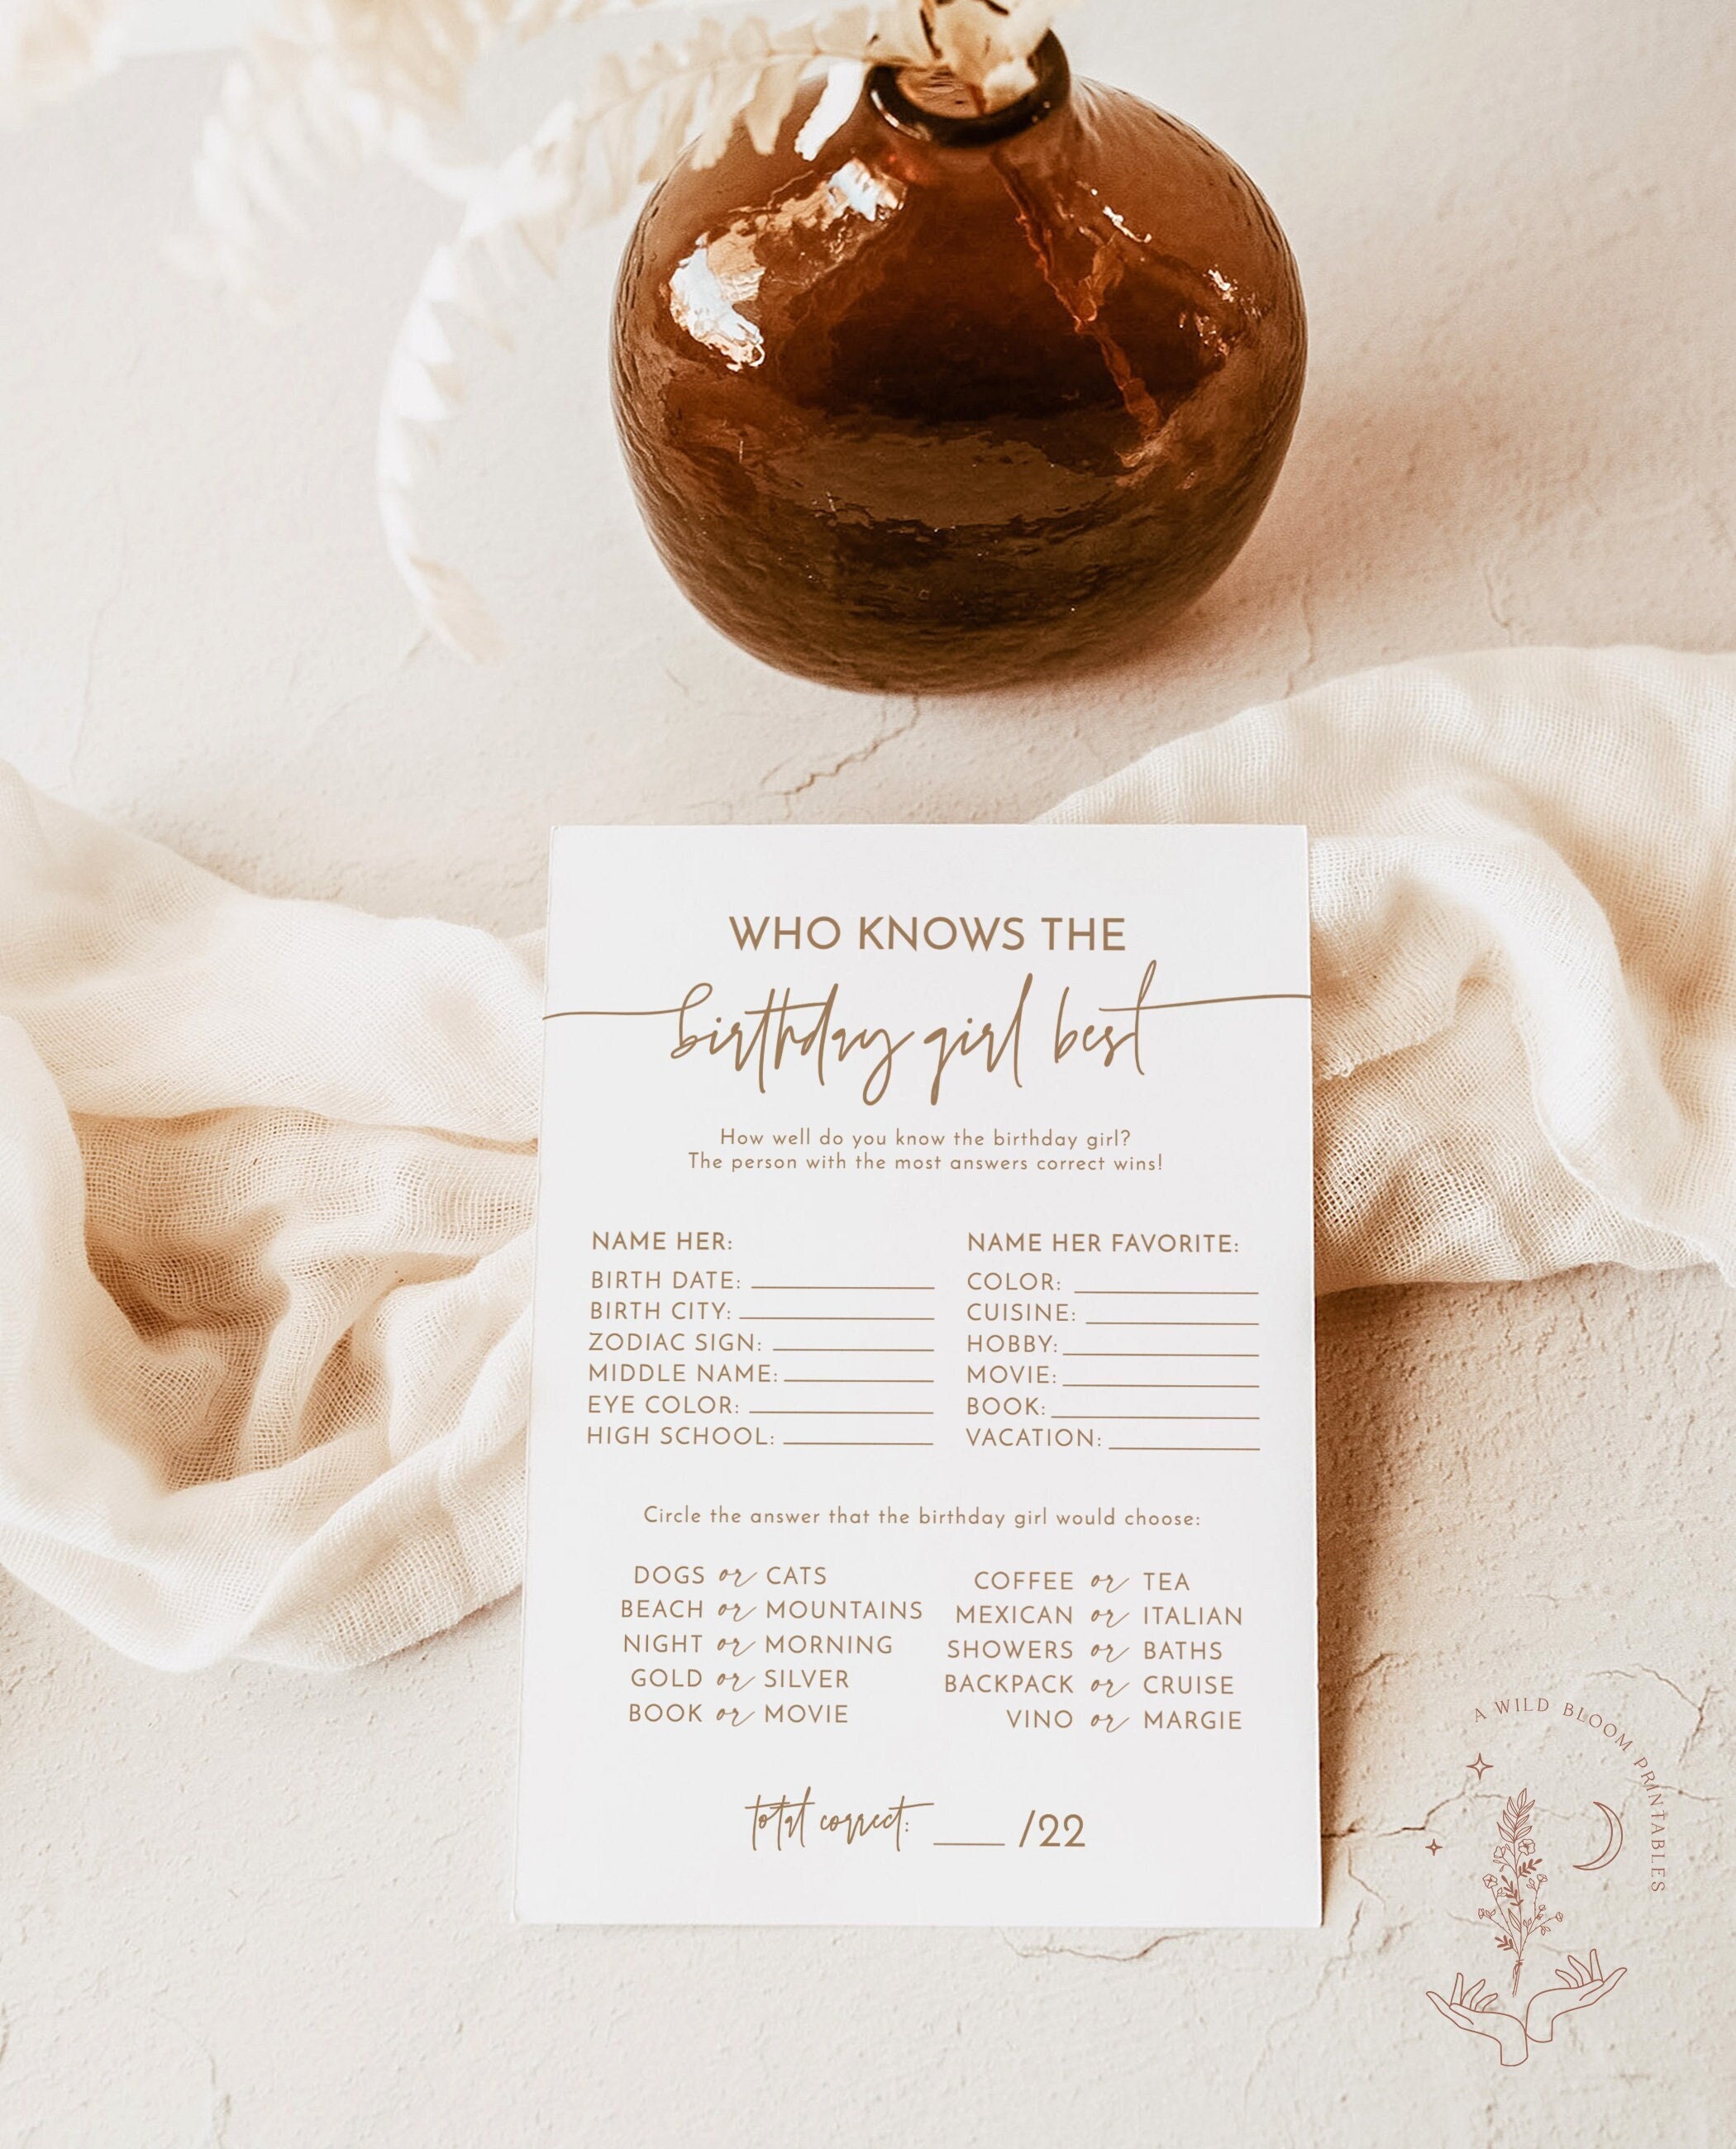 WHO KNOWS THE
birthday girl best
How well do you know the birthday girl?
The person with the most answers correct wins!
NAME HER:
BIRTH DATE: ____
BIRTH CITY: ____
ZODIAC SIGN: ____
MIDDLE NAME: ____
EYE COLOR: ____
HIGH SCHOOL: ____
NAME HER FAVORITE:
COLOR: ____
CUISINE: ____
HOBBY: ____
MOVIE: ____
BOOK: ____
VACATION: ____
Circle the answer that the birthday girl would choose:
DOGS or CATS
BEACH or MOUNTAINS
NIGHT or MORNING
GOLD or SILVER
BOOK or MOVIE
COFFEE or TEA
MEXICAN or ITALIAN
SHOWERS or BATHS
BACKPACK or CRUISE
VINO or MARGIE
total correct: ____ /22
A WILD BLOOM PRINTABLES